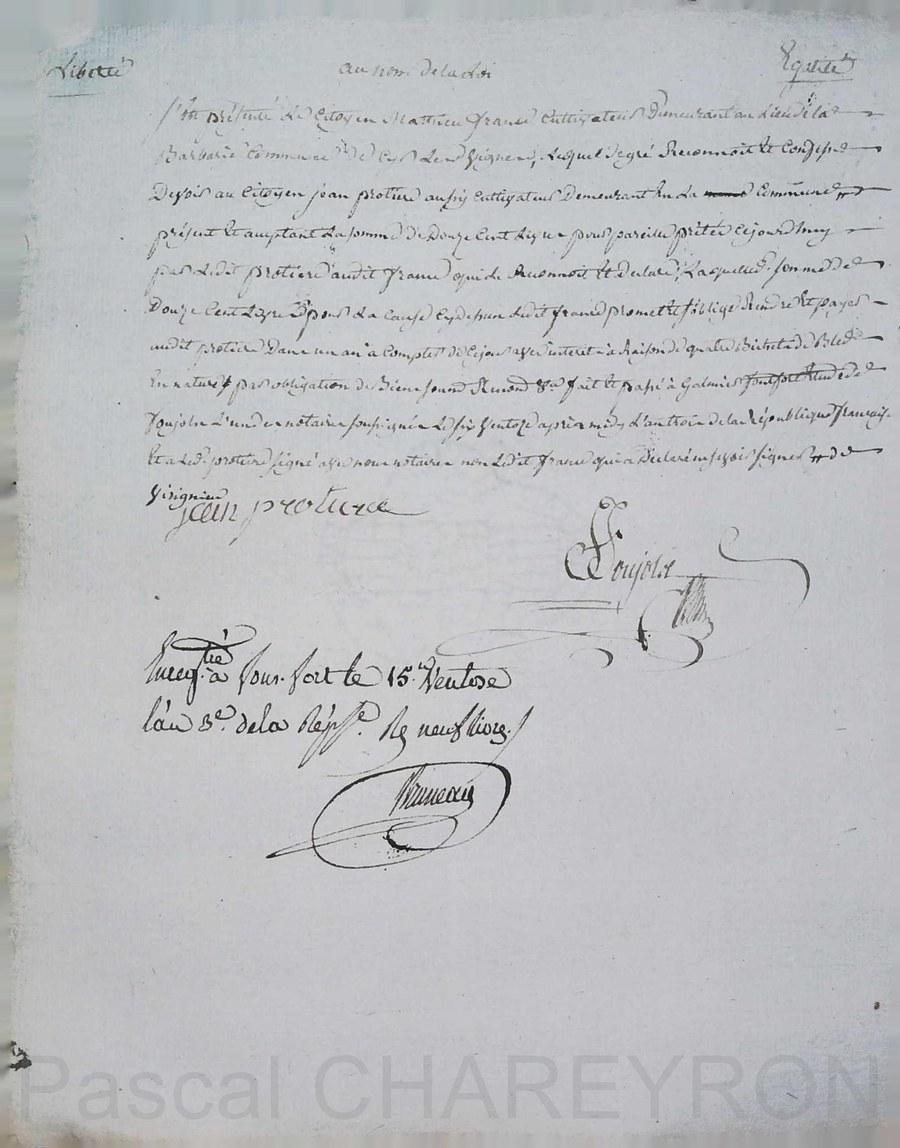 Liberté
au nom de la Loi
Egalité
S'est présenté Le Citoyen Mathieu france Cultivateur Demeurant au Lieu de la
Barbarie Commune de Lequel de gré Reconnoit Et Confesse
Devoir au Citoyen jean protiere aussy Cultivateur Demeurant En La Commune
présent Et acceptant La somme de Douze Cent Livres pour pareille prétée Cejourdhuy
par Ledit protiere audit france qui Le Reconnoit Et declare, Laquelle somme de
Douze Cent Livres pour La Cause Cy dessus Ledit france promet Et s'oblige Rendre Et payer
audit protiere Dans un an a Compter de Cejour avec interet a Raison de quatre Bichets de Bled
En nature par obligation de Biens fait Et passé à Galmier
Poujolat L'un des notaires soussignés Le six Ventoze après midy L'an trois de la République française
Et a Led. protiere signé avec nous notaires non Ledit france qui a Déclaré ne sçavoir signer de
jean protiere
Enregistré à fonfort le 15. Ventose
l'an 3e. de la Répque. R9 neuf livres
Bruneau
Pascal CHAREYRON